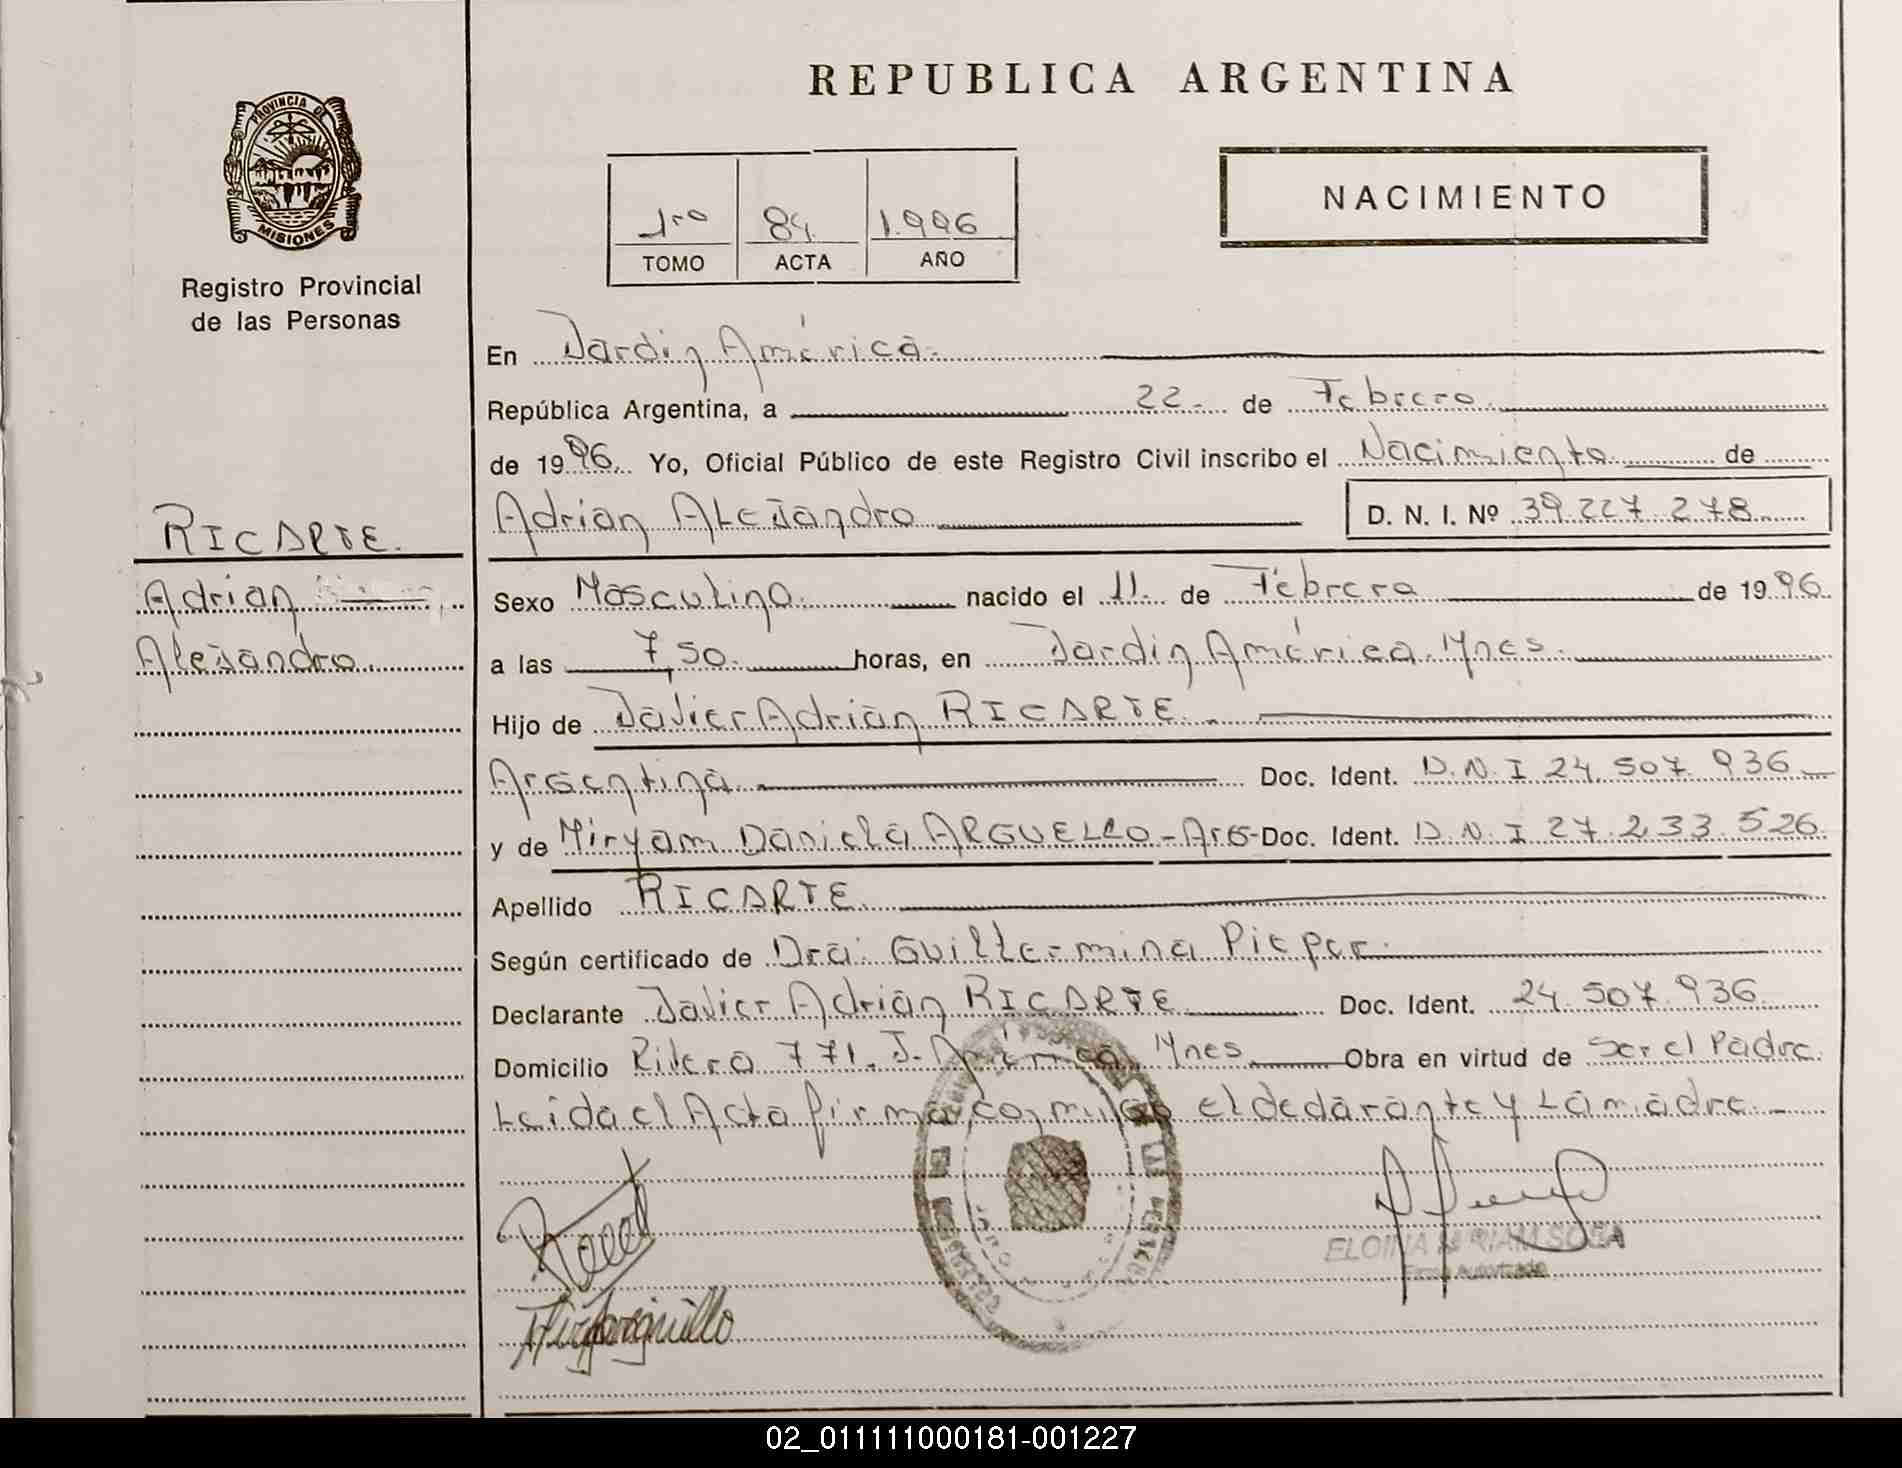 REPUBLICA ARGENTINA
PROVINCIA DE
MISIONES
Registro Provincial
de las Personas
NACIMIENTO
1ro 84 1.996
TOMO ACTA AÑO
En Jardin América.
República Argentina, a 22 de Febrero
de 1996. Yo, Oficial Público de este Registro Civil inscribo el Nacimiento de
Adrian Alejandro D. N. I. Nº 39.227.278
RICARTE.
Adrian
Alejandro
Sexo Masculino nacido el 11 de Febrero de 1996
a las 7,50 horas, en Jardin América. Mnes.
Hijo de Javier Adrián RICARTE.
Argentina Doc. Ident. D.N.I 24.507.936
y de Miryam Daniela ARGUELLO - Arg- Doc. Ident. D.N.I 27.233.526
Apellido RICARTE
Según certificado de Dra. Guillermina Pieper.
Declarante Javier Adrián RICARTE Doc. Ident. 24.507.936
Domicilio Rivera 771. J. América Mnes. Obra en virtud de Ser el Padre
Leida el Acta firma conmigo el declarante y la madre.
ELOINA MIRIAM SOSA
Firma Autorizada
02_011111000181-001227